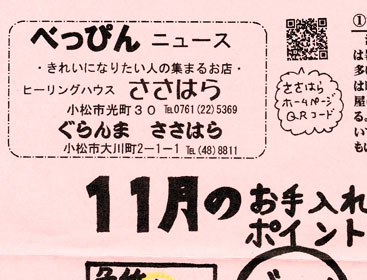 べっぴん ニュース
・きれいになりたい人の集まるお店・
ヒーリングハウス ささはら
小松市光町30 ℡0761(22)5369
ぐらんま ささはら
小松市大川町2-1-1 ℡(48)8811
ささはら
ホームページ
QRコード
11月のお手入れ
ポイント
①